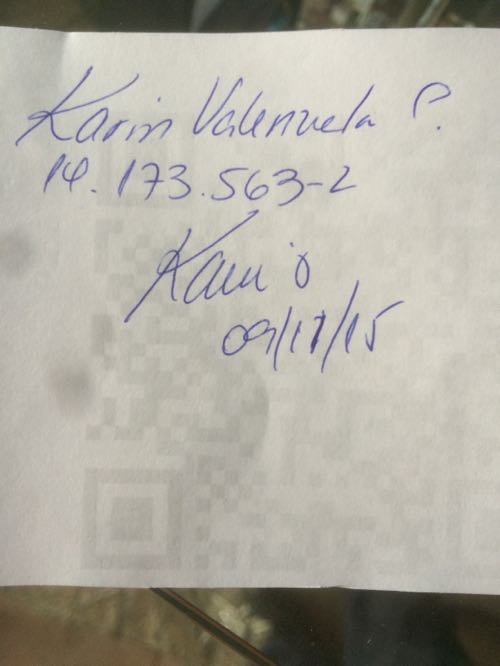 Karin Valenzuela P.
14.173.563-2
09/11/15